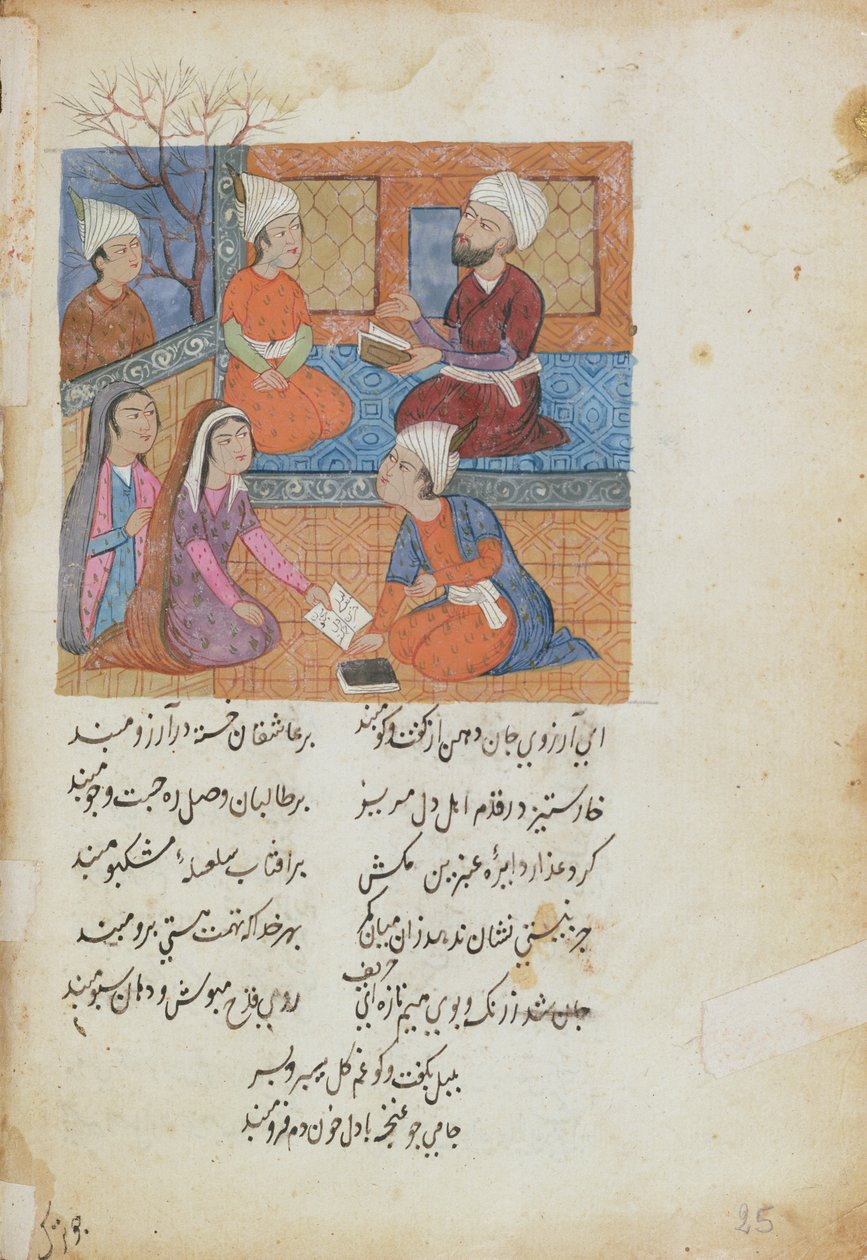 ای آرزوی جان دهن از کفت و کو مبند بر عاشقان خسته در آرزو مبند
خار ستیز در قدم اهل دل مریز بر طالبان وصل ره جست و جو مبند
کرد عذار دایرهٔ عنبرین مکش بر افتاب سلسلهٔ مشکبو مبند
جز نیستی نشان ندهد زان میان کمر بهر خدا که تهمت هستی برو مبند
جان شد ز رنک و بوی میم تازه ای حریف روی قدح مپوش و دهان سبو مبند
بلبل بکفت و کو غم کل میبرد بسر
جامی جو غنچه با دل خون دم فرو مبند
25